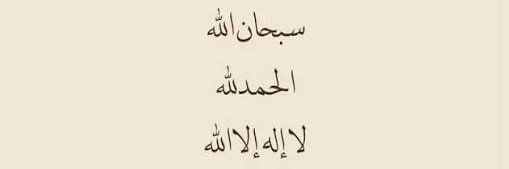 سبحان الله
الحمد لله
لا إله إلا الله